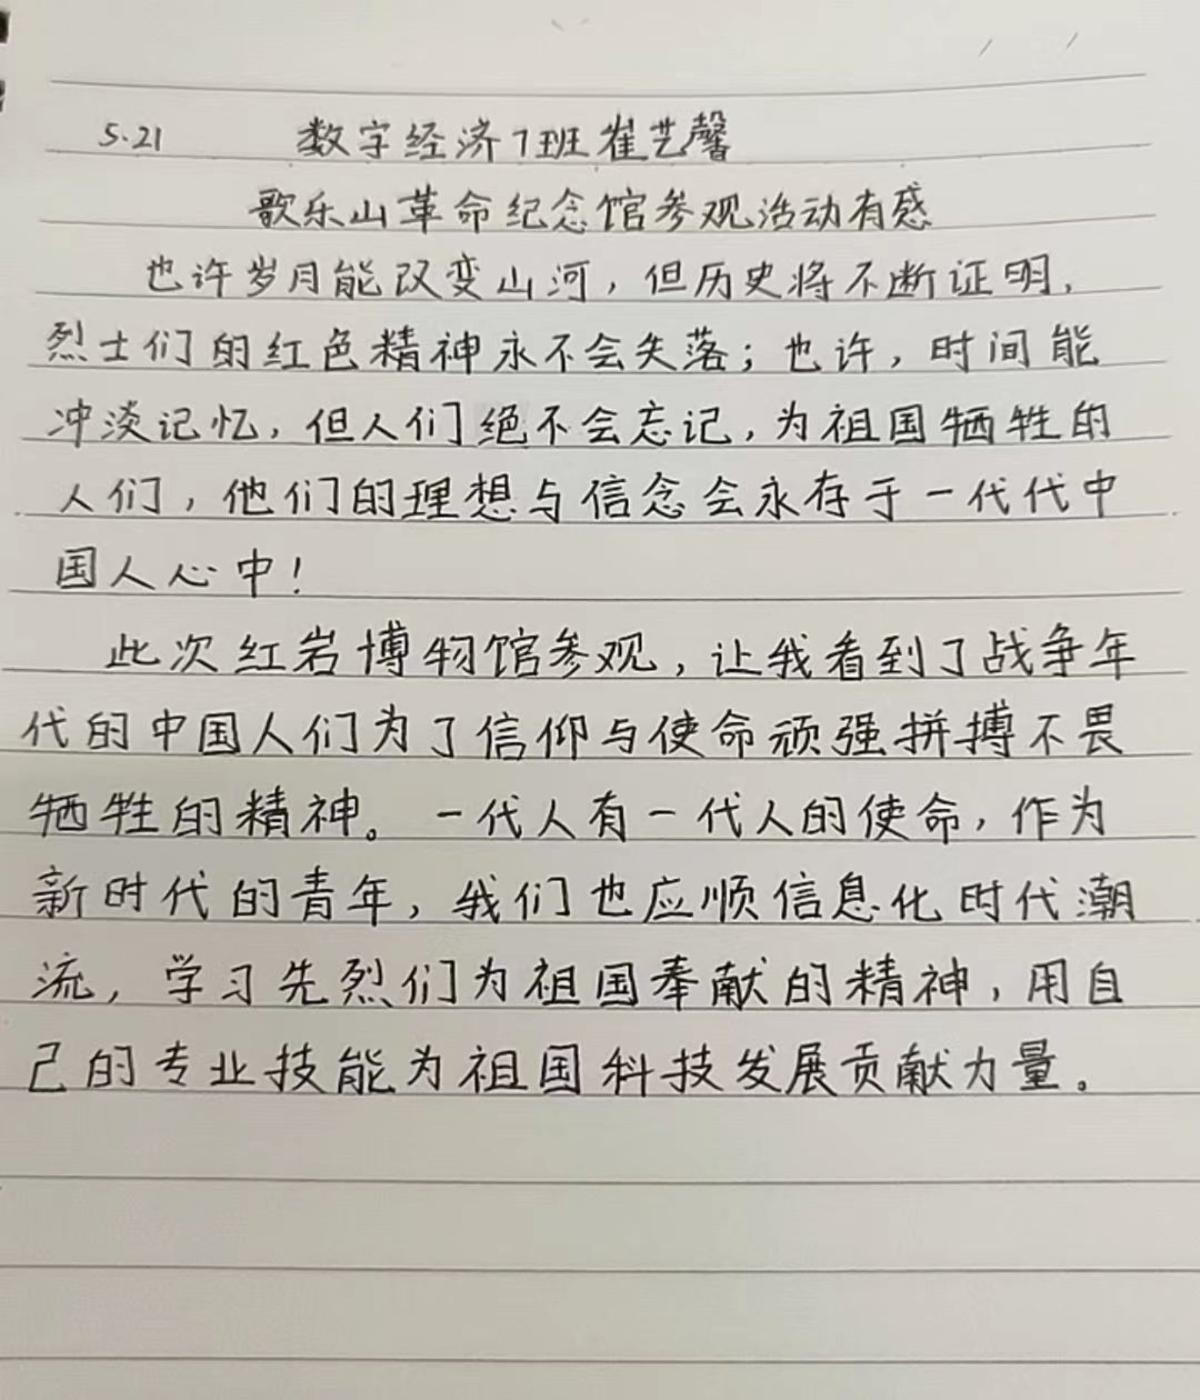 5.21 数字经济7班崔艺馨
歌乐山革命纪念馆参观活动有感
也许岁月能改变山河，但历史将不断证明，
烈士们的红色精神永不会失落；也许，时间能
冲淡记忆，但人们绝不会忘记，为祖国牺牲的
人们，他们的理想与信念会永存于一代代中
国人心中！
此次红岩博物馆参观，让我看到了战争年
代的中国人们为了信仰与使命顽强拼搏不畏
牺牲的精神。一代人有一代人的使命，作为
新时代的青年，我们也应顺信息化时代潮
流，学习先烈们为祖国奉献的精神，用自
己的专业技能为祖国科技发展贡献力量。